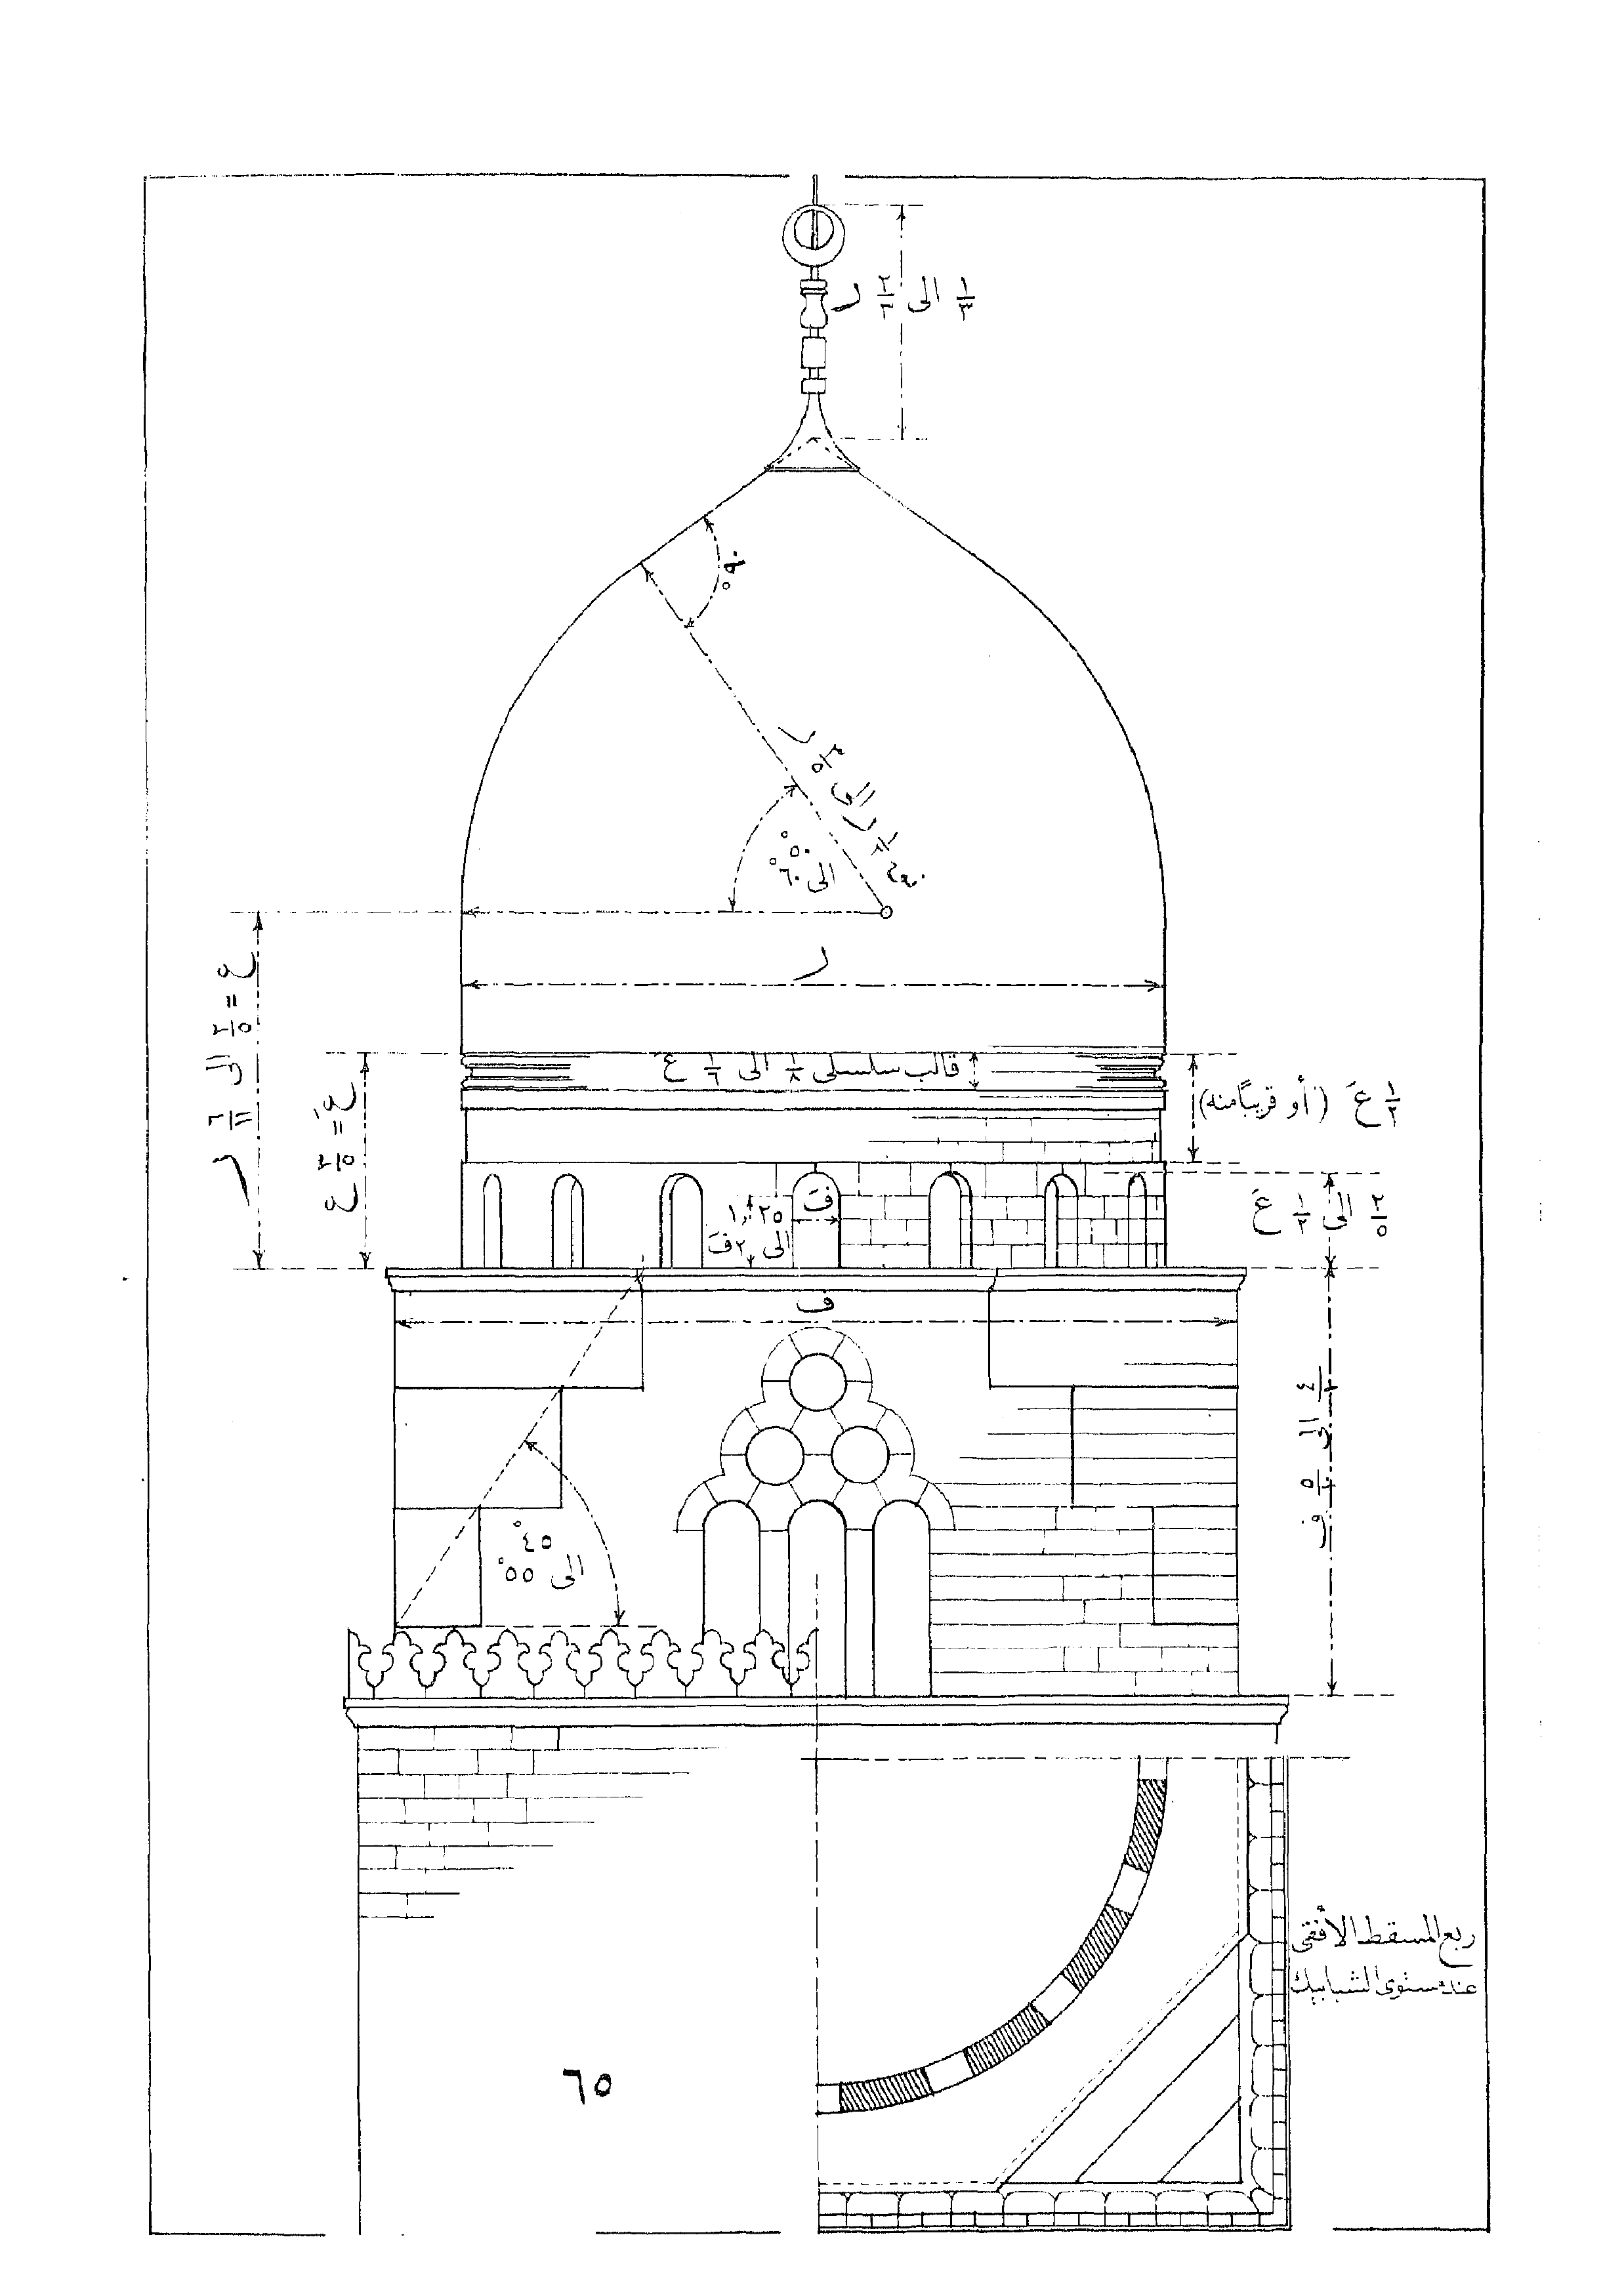 ١/٣ الى ٢/٣ ر
٩٠°
نق ١/٢ ر الى ٣/٥ ر
٥٠°
الى ٦٠°
ر
ع = ٢/٥ الى ٦/١١ ر
عَ = ٣/٥ ع
قالب سلسلى ١/٨ الى ١/٦ عَ
١/٢ عَ (أو قريبًا منه)
٢/٥ الى ١/٢ عَ
فَ
١,٢٥
الى ٢ فَ
ف
الى ٥٥°
٤٥°
ربع المسقط الأفقى
عند مستوى الشبابيك
٦٥